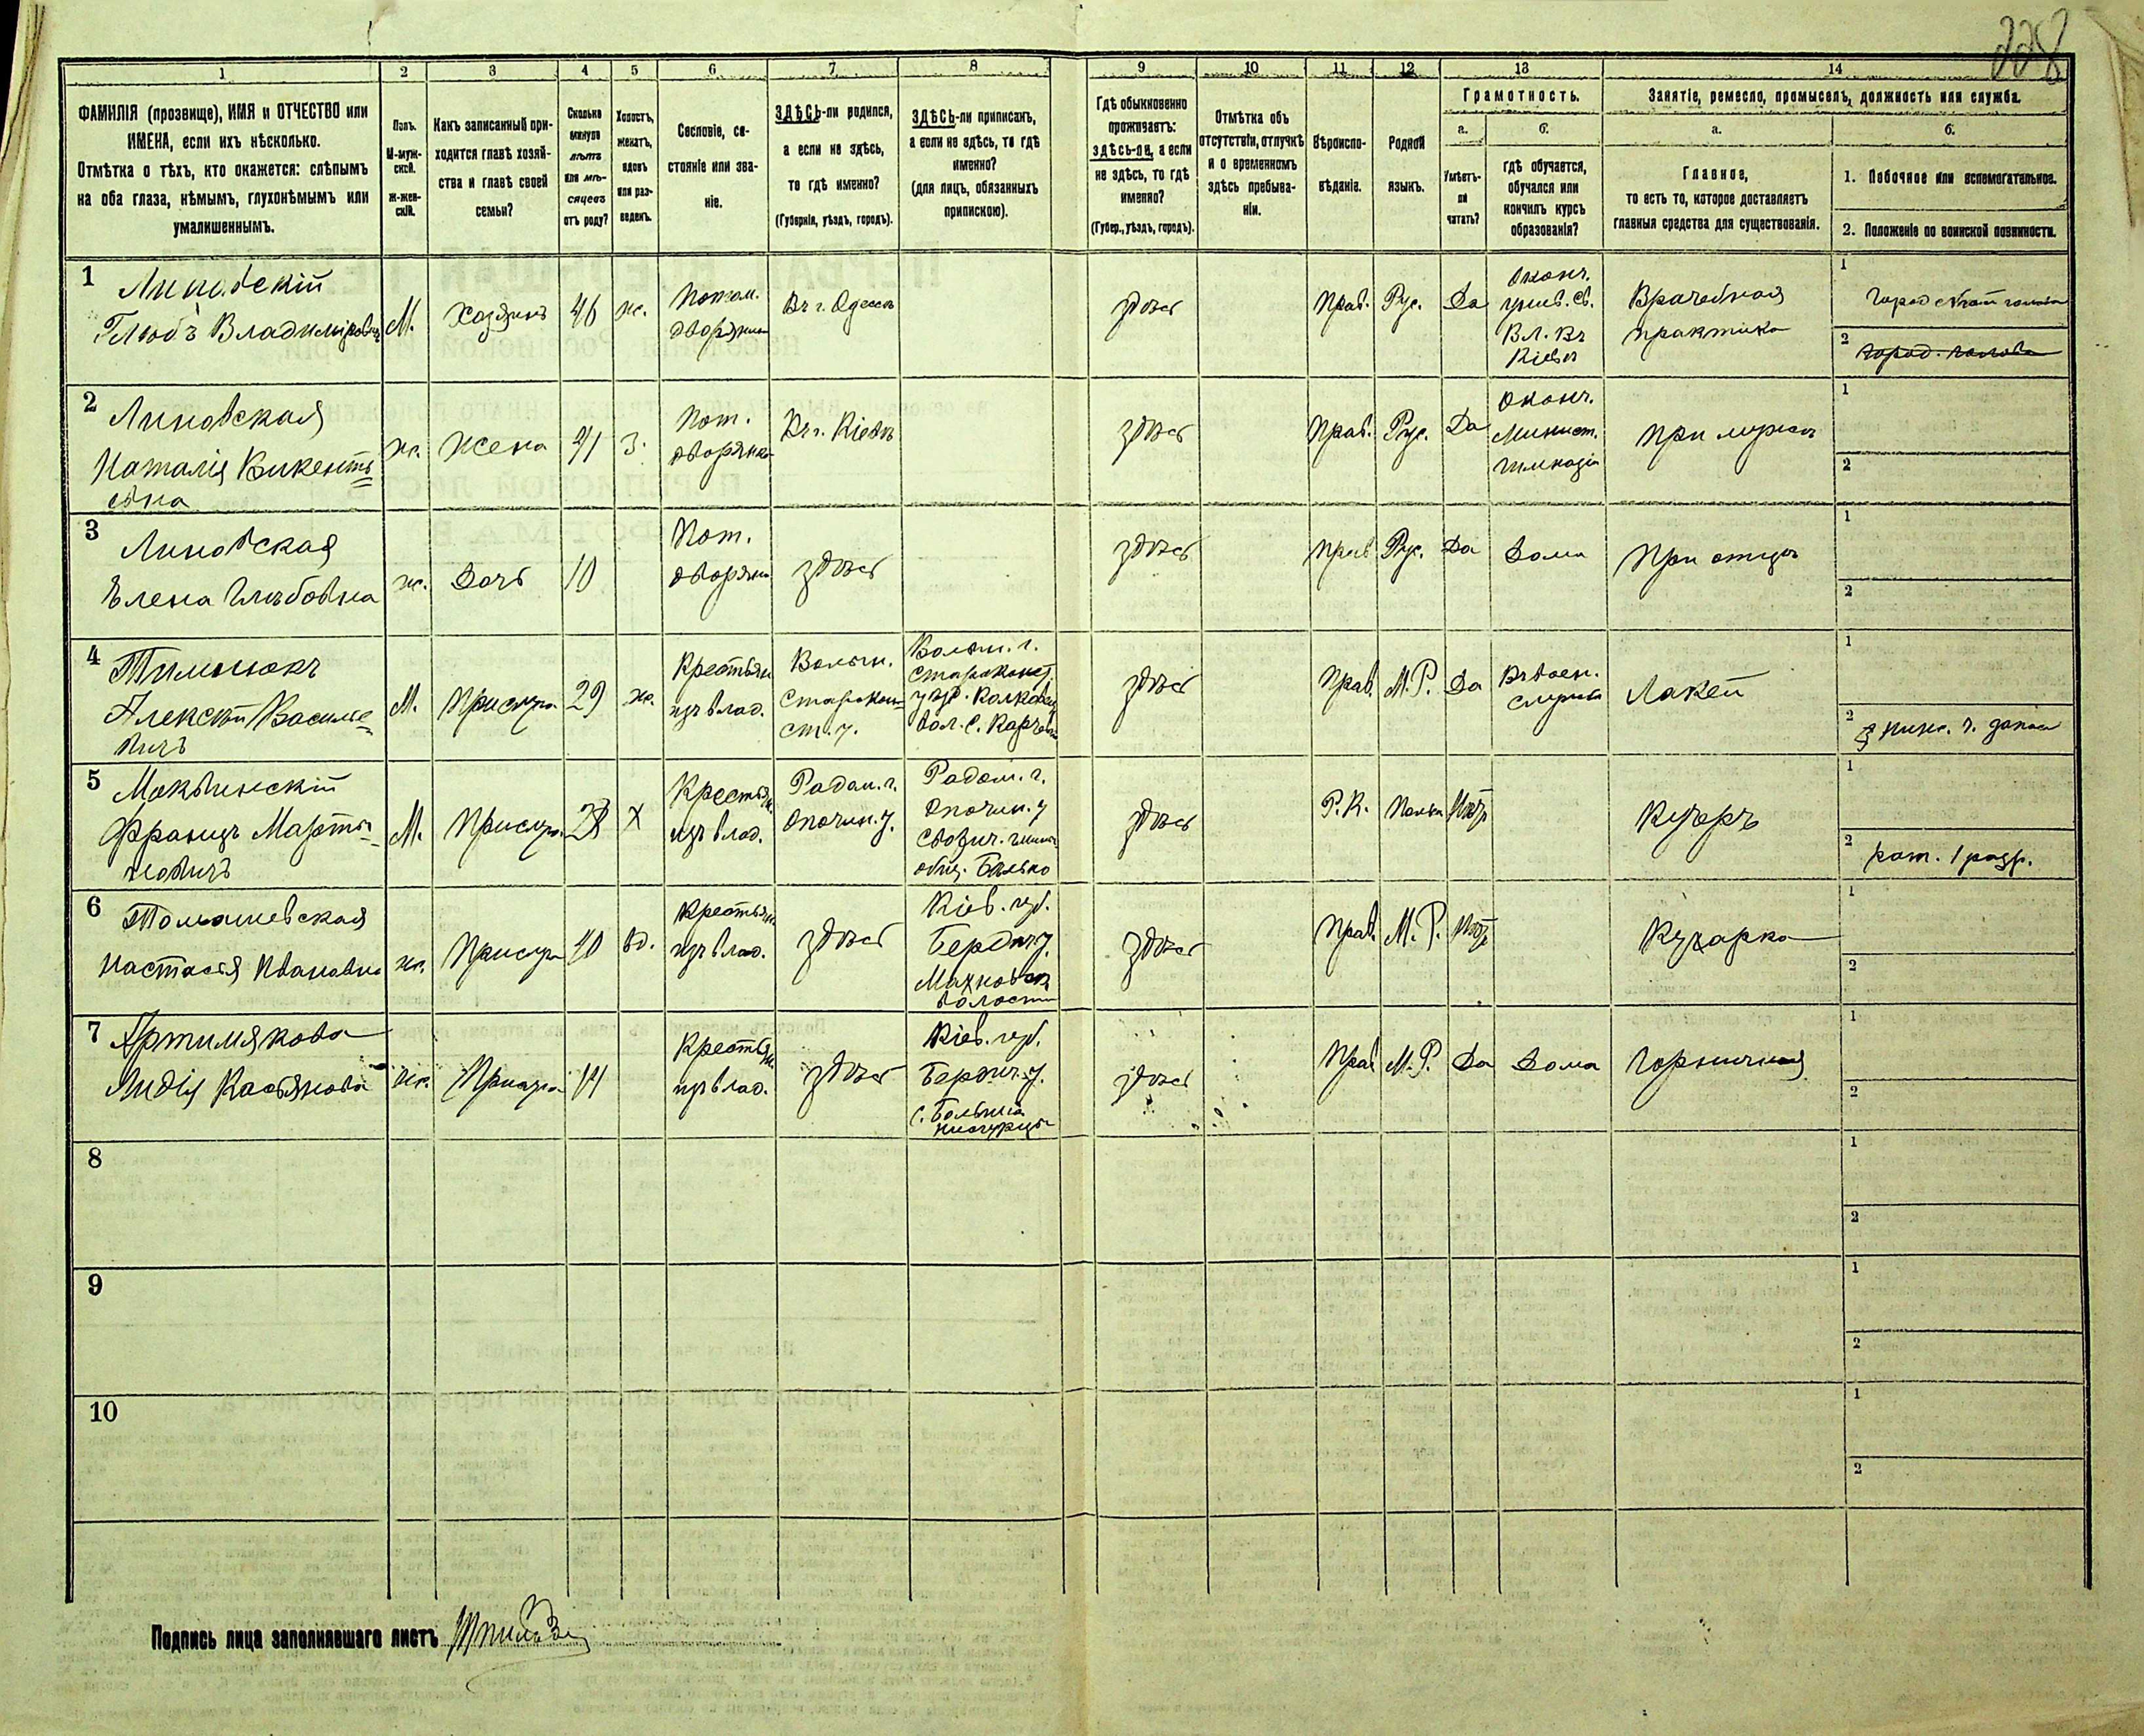 228
1 2 3 4 5 6 7 8 9 10 11 12 13 14
ФАМИЛІЯ (прозвище), ИМЯ и ОТЧЕСТВО или
ИМЕНА, если ихъ нѣсколько.
Отмѣтка о тѣхъ, кто окажется: слѣпымъ
на оба глаза, нѣмымъ, глухонѣмымъ или
умалишеннымъ.
Полъ.
М-муж-
ской.
Ж-жен-
скій.
Какъ записанный при-
ходится главѣ хозяй-
ства и главѣ своей
семьи?
Сколько
минуло
лѣтъ
или мѣ-
сяцевъ
отъ роду?
Холостъ,
женатъ,
вдовъ
или раз-
веденъ.
Сословіе, со-
стояніе или зва-
ніе.
ЗДѢСЬ-ли родился,
а если не здѣсь,
то гдѣ именно?
(Губернія, уѣздъ, городъ).
ЗДѢСЬ-ли приписанъ,
а если не здѣсь, то гдѣ
именно?
(для лицъ, обязанныхъ
припискою).
Гдѣ обыкновенно
проживаетъ:
здѣсь-ли, а если
не здѣсь, то гдѣ
именно?
(Губер., уѣздъ, городъ).
Отмѣтка объ
отсутствіи, отлучкѣ
и о временномъ
здѣсь пребыва-
ніи.
Вѣроиспо-
вѣданіе.
Родной
языкъ.
Грамотность.
а.
Умѣетъ-
ли
читать?
б.
Гдѣ обучается,
обучался или
кончилъ курсъ
образованія?
Занятіе, ремесло, промыселъ, должность или служба.
а.
Главное,
то есть то, которое доставляетъ
главныя средства для существованія.
б.
1. Побочное или вспомогательное.
2. Положеніе по воинской повинности.
1
Линовскій
Глѣбъ Владиміровичъ
М.
Хозяинъ
46
ж.
Потом.
дворянин
Въ г. Одессѣ
здѣсь
Прав.
Рус.
Да
Оконч.
унив. Св.
Вл. въ
Кіевѣ
Врачебная
практика
1
городской голова
2
город. голова
2
Линовская
Наталія Викентъ
евна
ж.
Жена
41
З.
Пот.
дворянка
Въ г. Кіевѣ
здѣсь
Прав.
Рус.
Да
Оконч.
Минист.
гимназію
При мужѣ
1
2
3
Линовская
Елена Глѣбовна
ж.
Дочь
10
Пот.
дворянк
здѣсь
здѣсь
Прав
Рус.
Да
Дома
При отцѣ
1
2
4
Тимошокъ
Алексѣй Василье
вичъ
М.
Прислуга
29
ж.
Крестьян
изъ влад.
Волын.
Старокон
ст. у.
Волын. г.
Староконст.
вол. с.
здѣсь
Прав.
М. Р.
Да
Въ воен.
службѣ
Лакей
1
2
запаса
5
Францъ Марты
новичъ
М.
Прислуг.
Х
Крестьян.
изъ влад.
Радом. г.
Опочин. у.
Радом. г.
Опочин. у
общ.
здѣсь
Р. К.
Нѣтъ
Кучеръ
1
2
рат. 1 разр.
6
Томашевская
Настасья Ивановна
ж.
Прислуга
40
вд.
Крестьян
изъ влад.
здѣсь
Кіев. губ.
Бердич. у.
Махновск
волости
здѣсь
Прав.
М. Р.
Нѣтъ
Кухарка
1
2
7
Артимякова
Лидія Касьянова
ж.
Прислуга
14
Крестьян.
изъ влад.
здѣсь
Кіев. губ.
Бердич. у.
с. Большіа
Низгурцы
здѣсь
Прав
М. Р.
Да
Дома
Горничная
1
2
8
1
2
9
1
2
10
1
2
Подпись лица заполнявшаго листъ